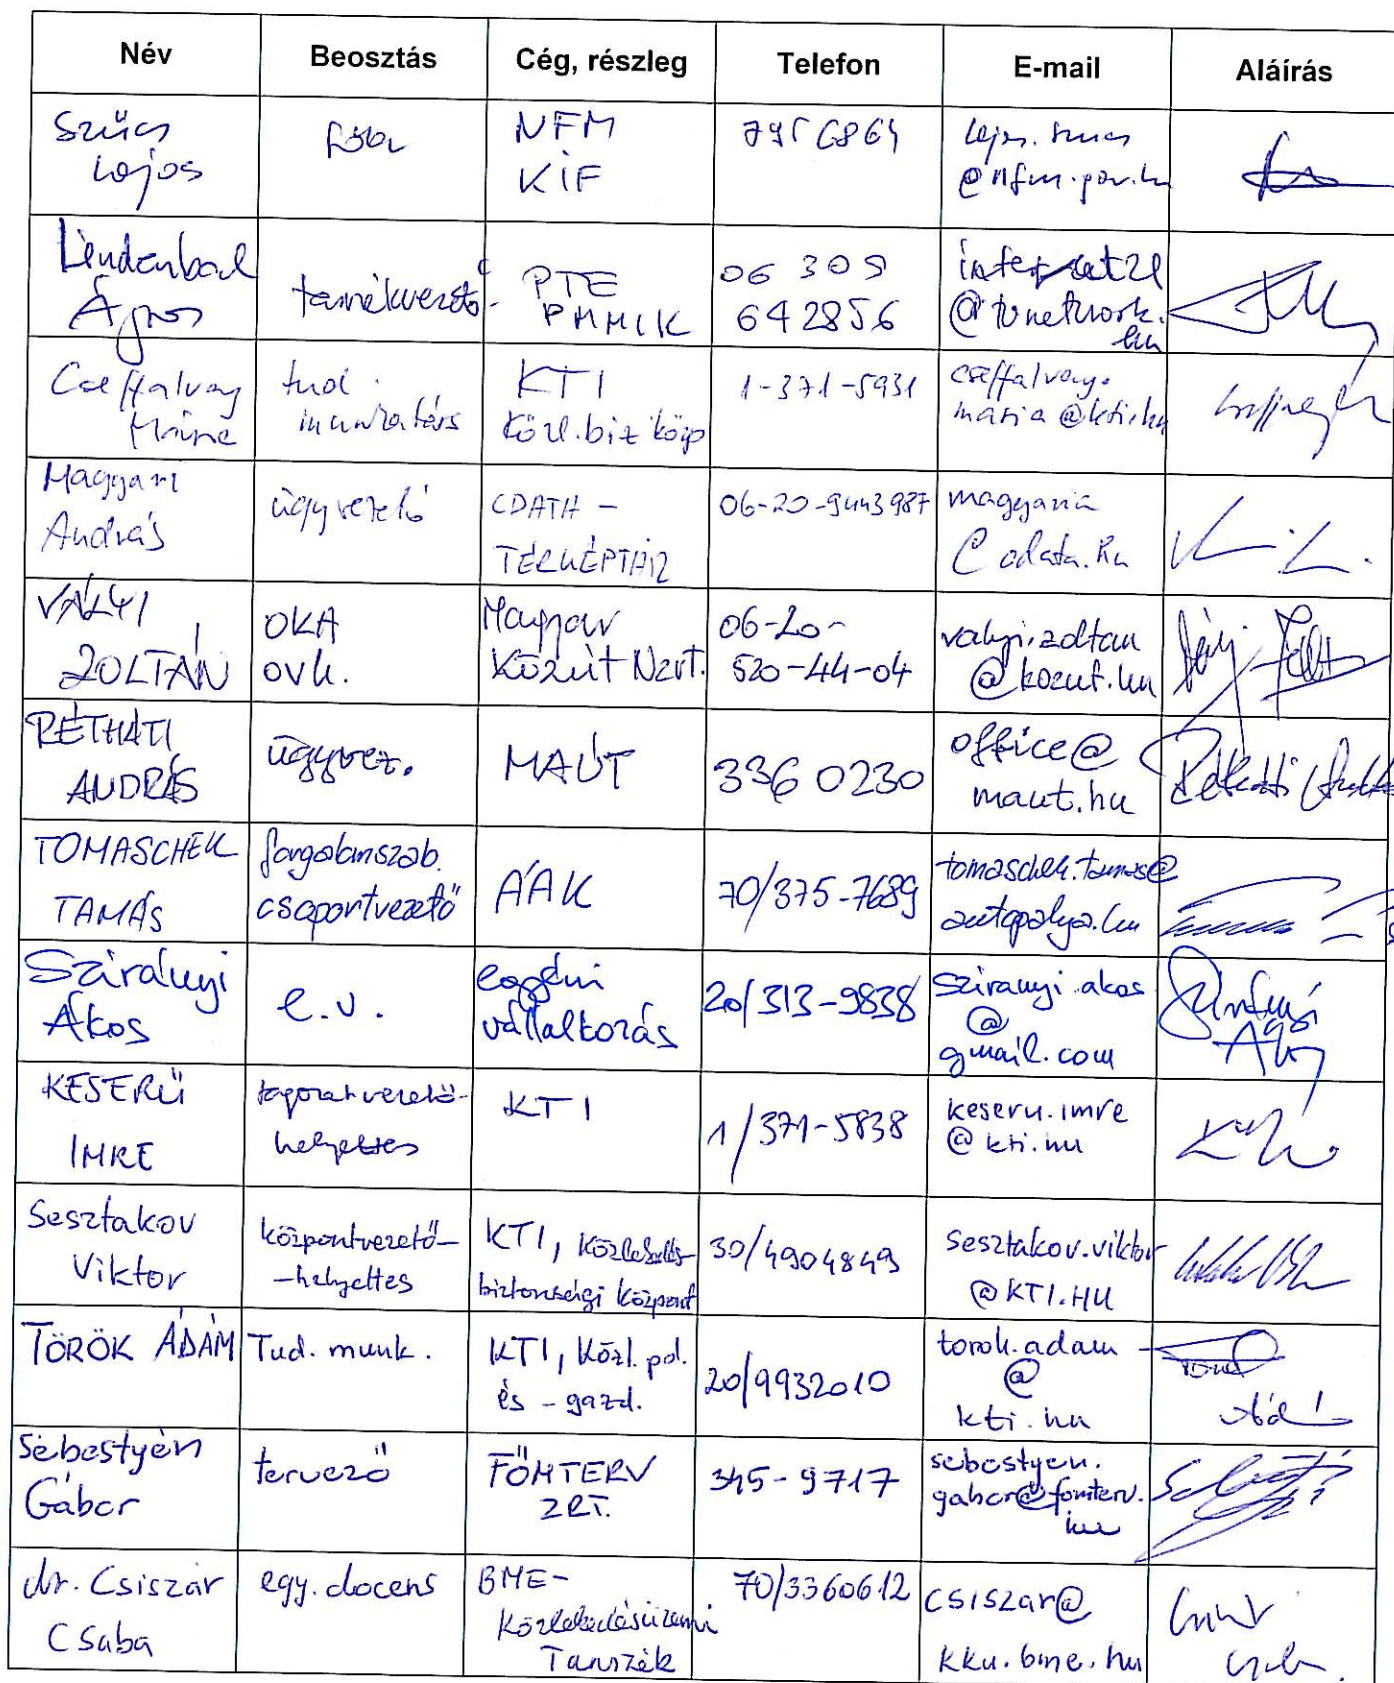 Név Beosztás Cég, részleg Telefon E-mail Aláírás
Szűcs
Lajos
NFM
KIF
795 6864
lajos.szucs
@nfm.gov.hu
Ágnes
PTE
PMMIK
06 309
642856
@tvnetwork.
hu
Cseffalvay
tud.
munkatárs
KTI
Közl.bizt közp
1-371-5931
cseffalvay.
maria@kti.hu
Magyari
András
ügyvezető
CDATA -
TÉRKÉPTÁR
06-20-9443987
magyaria
@cdata.hu
VÁLYI
ZOLTÁN
OKA
ovh.
Magyar
Közút Nzrt.
06-20-
520-44-04
valyi.zoltan
@kozut.hu
RÉTHÁTI
ANDRÁS
ügyvez.
MAÚT
336 0230
office@
maut.hu
Réthati András
TOMASCHEK
TAMÁS
forgalomszab.
csoportvezető
ÁAK
70/375-7689
tomaschek.tamas@
autopalya.hu
Szirányi
Ákos
e.v.
egyéni
vállalkozás
20/313-9838
sziranyi.akos
@
gmail.com
KESERŰ
IMRE
tagozatvezető-
helyettes
KTI
1/371-5838
keseru.imre
@kti.hu
Sesztakov
Viktor
központvezető-
-helyettes
KTI, Közlekedés-
biztonsági Központ
30/4904849
sesztakov.viktor
@KTI.HU
TÖRÖK ÁDÁM
Tud. munk.
KTI, Közl. pol.
és - gazd.
20/9932010
torok.adam
@
kti.hu
Sebestyén
Gábor
tervező
FŐMTERV
ZRT.
345-9717
sebestyen.
gabor@fomterv.
hu
dr. Csiszár
Csaba
egy. docens
BME-
Közlekedésüzemi
Tanszék
70/3360612
csiszar@
kku.bme.hu